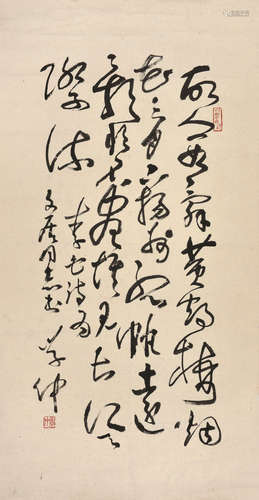 故人西辞黄鹤楼烟
花三月下扬州孤帆远
影碧空尽惟见长江天
际流
李白诗为
文同志书
学仲